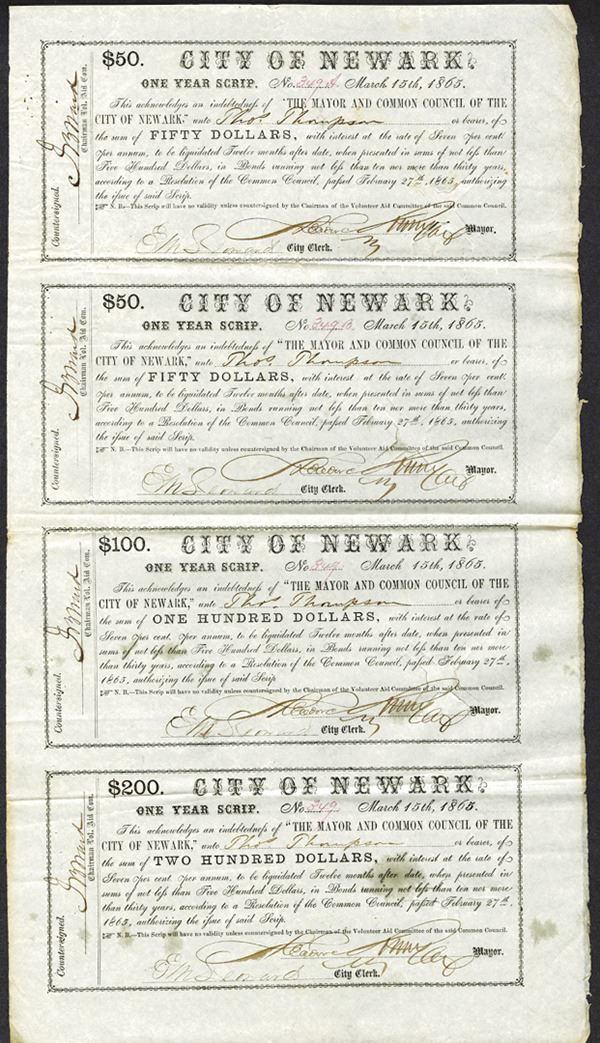 $50. CITY OF NEWARK.
ONE YEAR SCRIP. No. 349 A March 15th, 1865.
This acknowledges an indebtedness of "THE MAYOR AND COMMON COUNCIL OF THE
CITY OF NEWARK," unto Thos. Thompson or bearer, of
the sum of FIFTY DOLLARS, with interest at the rate of Seven per cent.
per annum, to be liquidated Twelve months after date, when presented in sums of not less than
Five Hundred Dollars, in Bonds running not less than ten nor more than thirty years,
according to a Resolution of the Common Council, passed February 27th, 1865, authorizing
the issue of said Scrip.
N. B.—This Scrip will have no validity unless countersigned by the Chairman of the Volunteer Aid Committee of the said Common Council.
Mayor.
City Clerk.
Countersigned.
Chairman Vol. Aid Com.
$50. CITY OF NEWARK.
ONE YEAR SCRIP. No. 349 B. March 15th, 1865.
This acknowledges an indebtedness of "THE MAYOR AND COMMON COUNCIL OF THE
CITY OF NEWARK," unto Thos. Thompson or bearer, of
the sum of FIFTY DOLLARS, with interest at the rate of Seven per cent.
per annum, to be liquidated Twelve months after date, when presented in sums of not less than
Five Hundred Dollars, in Bonds running not less than ten nor more than thirty years,
according to a Resolution of the Common Council, passed February 27th, 1865, authorizing
the issue of said Scrip.
N. B.—This Scrip will have no validity unless countersigned by the Chairman of the Volunteer Aid Committee of the said Common Council.
Mayor.
City Clerk.
Countersigned.
Chairman Vol. Aid Com.
$100. CITY OF NEWARK.
ONE YEAR SCRIP. No. 349. March 15th, 1865.
This acknowledges an indebtedness of "THE MAYOR AND COMMON COUNCIL OF THE
CITY OF NEWARK," unto Thos. Thompson or bearer of
the sum of ONE HUNDRED DOLLARS, with interest at the rate of
Seven per cent. per annum, to be liquidated Twelve months after date, when presented in
sums of not less than Five Hundred Dollars, in Bonds running not less than ten nor more
than thirty years, according to a Resolution of the Common Council, passed February 27th,
1865, authorizing the issue of said Scrip
N. B.—This Scrip will have no validity unless countersigned by the Chairman of the Volunteer Aid Committee of the said Common Council.
Mayor.
City Clerk.
Countersigned.
Chairman Vol. Aid Com.
$200. CITY OF NEWARK.
ONE YEAR SCRIP. No. 349. March 15th, 1865.
This acknowledges an indebtedness of "THE MAYOR AND COMMON COUNCIL OF THE
CITY OF NEWARK," unto Thos. Thompson or bearer, of
the sum of TWO HUNDRED DOLLARS, with interest at the rate of
Seven per cent. per annum, to be liquidated Twelve months after date, when presented in
sums of not less than Five Hundred Dollars, in Bonds running not less than ten nor more
than thirty years, according to a Resolution of the Common Council, passed February 27th,
1865, authorizing the issue of said Scrip.
N. B.—This Scrip will have no validity unless countersigned by the Chairman of the Volunteer Aid Committee of the said Common Council.
Mayor.
City Clerk.
Countersigned.
Chairman Vol. Aid Com.